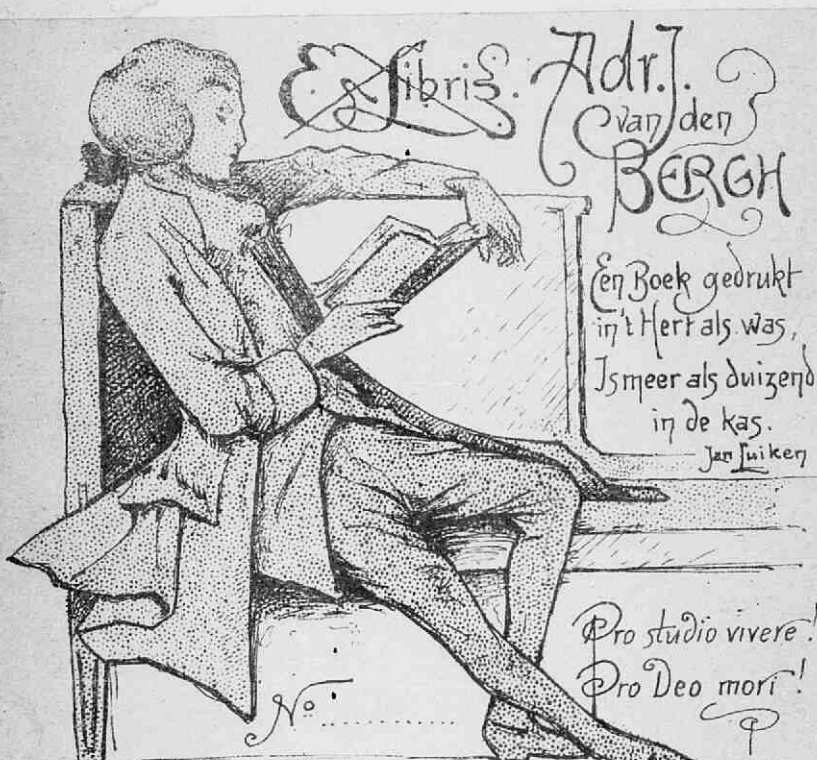 Ex Libris.
Adr. J.
van den
BERGH
Een Boek gedrukt
in 't Hert als was,
Is meer als duizend
in de kas.
Jan Luiken
Pro studio vivere!
Pro Deo mori!
No..............